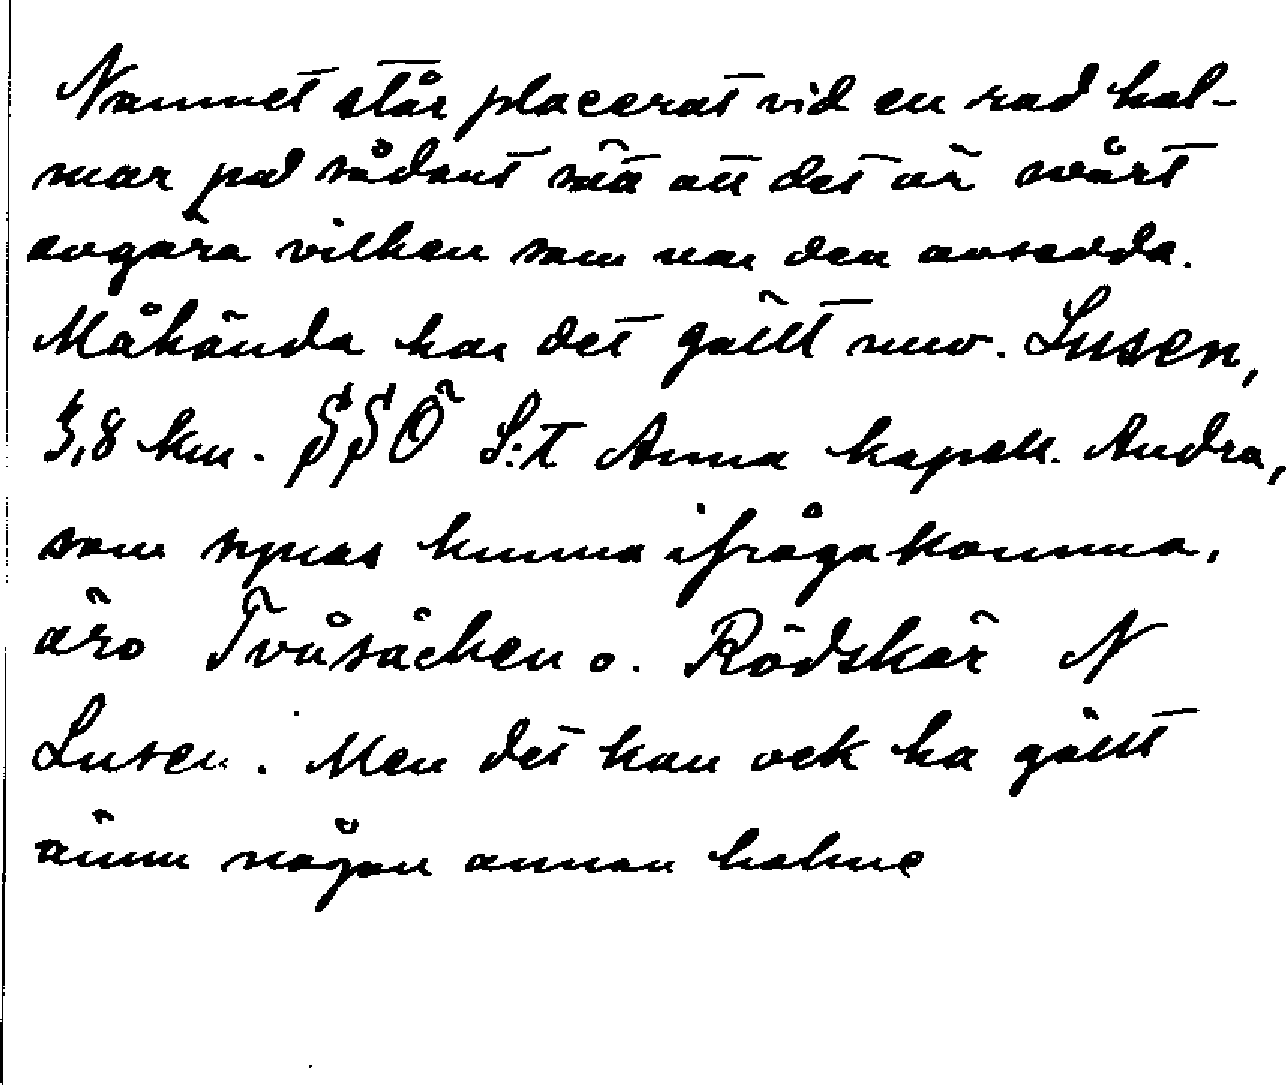 Namnet står placerat vid en rad hol-
mar på sådant sätt att det är svårt
avgöra vilken som var den avsedda.
Måhända har det gällt nuv. Lusen,
3,8 km. SSÖ S:t Anna kapell. Andra,
som synas kunna ifrågakomma,
äro Tvåsäcken o. Rödskär N
Lusen. Men det kan ock ha gällt
ännu någon annan holme